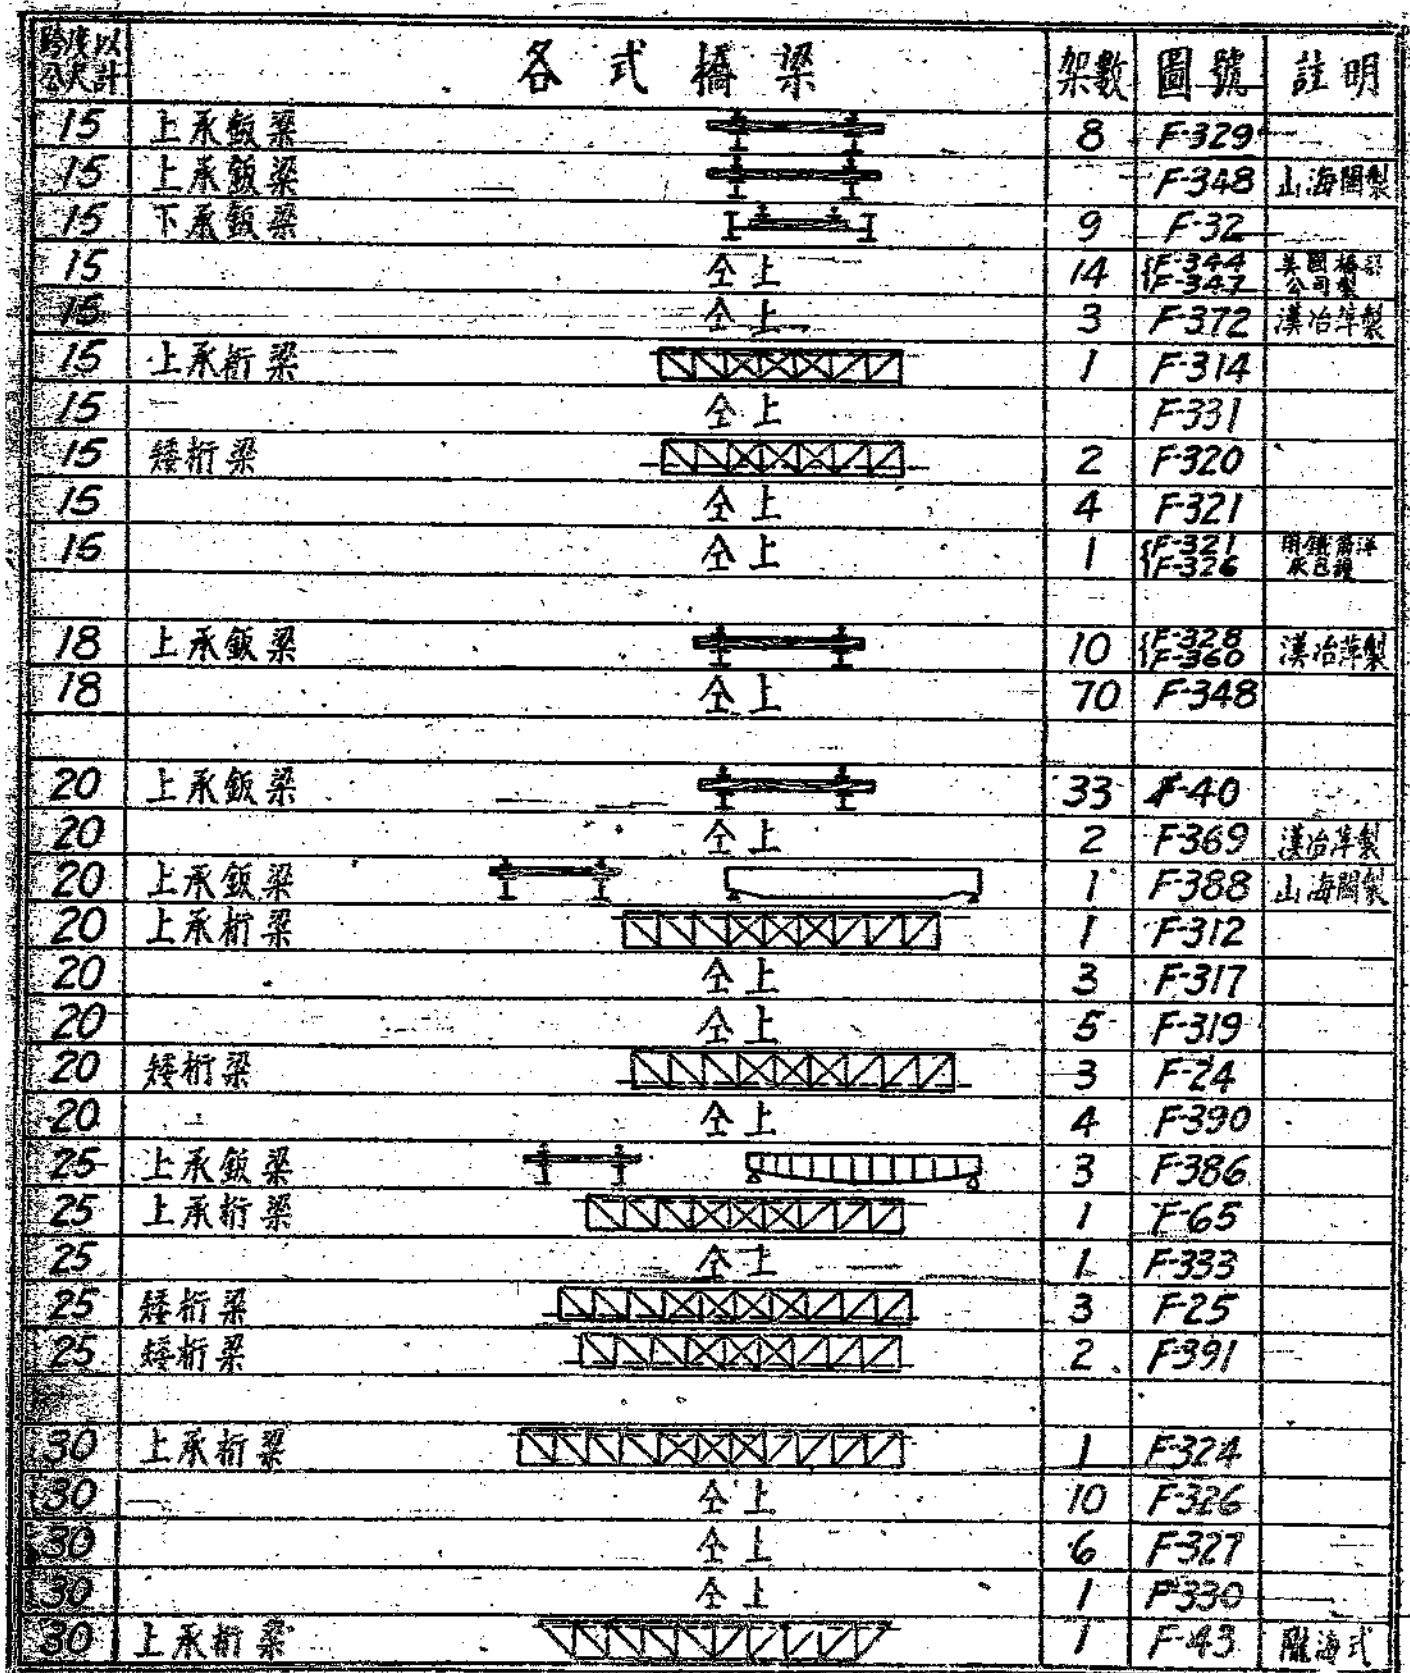 跨度以公尺計 各式橋梁 架數 圖號 註明
15 上承鈑梁 8 F-329
15 上承鈑梁 F-348 山海關製
15 下承鈑梁 9 F-32
15 仝上 14 {F-344 {F-347 美國橋梁公司製
15 仝上 3 F-372 漢冶萍製
15 上承桁梁 1 F-314
15 仝上 F-331
15 矮桁梁 2 F-320
15 仝上 4 F-321
15 仝上 1 {F-321 {F-326 用鐵筋洋灰包鑲
18 上承鈑梁 10 {F-328 {F-360 漢冶萍製
18 仝上 70 F-348
20 上承鈑梁 33 F-40
20 仝上 2 F-369 漢冶萍製
20 上承鈑梁 1 F-388 山海關製
20 上承桁梁 1 F-312
20 仝上 3 F-317
20 仝上 5 F-319
20 矮桁梁 3 F-24
20 仝上 4 F-390
25 上承鈑梁 3 F-386
25 上承桁梁 1 F-65
25 仝上 1 F-333
25 矮桁梁 3 F-25
25 矮桁梁 2 F-391
30 上承桁梁 1 F-324
30 仝上 10 F-326
30 仝上 6 F-327
30 仝上 1 F-330
30 上承桁梁 1 F-43 隴海式